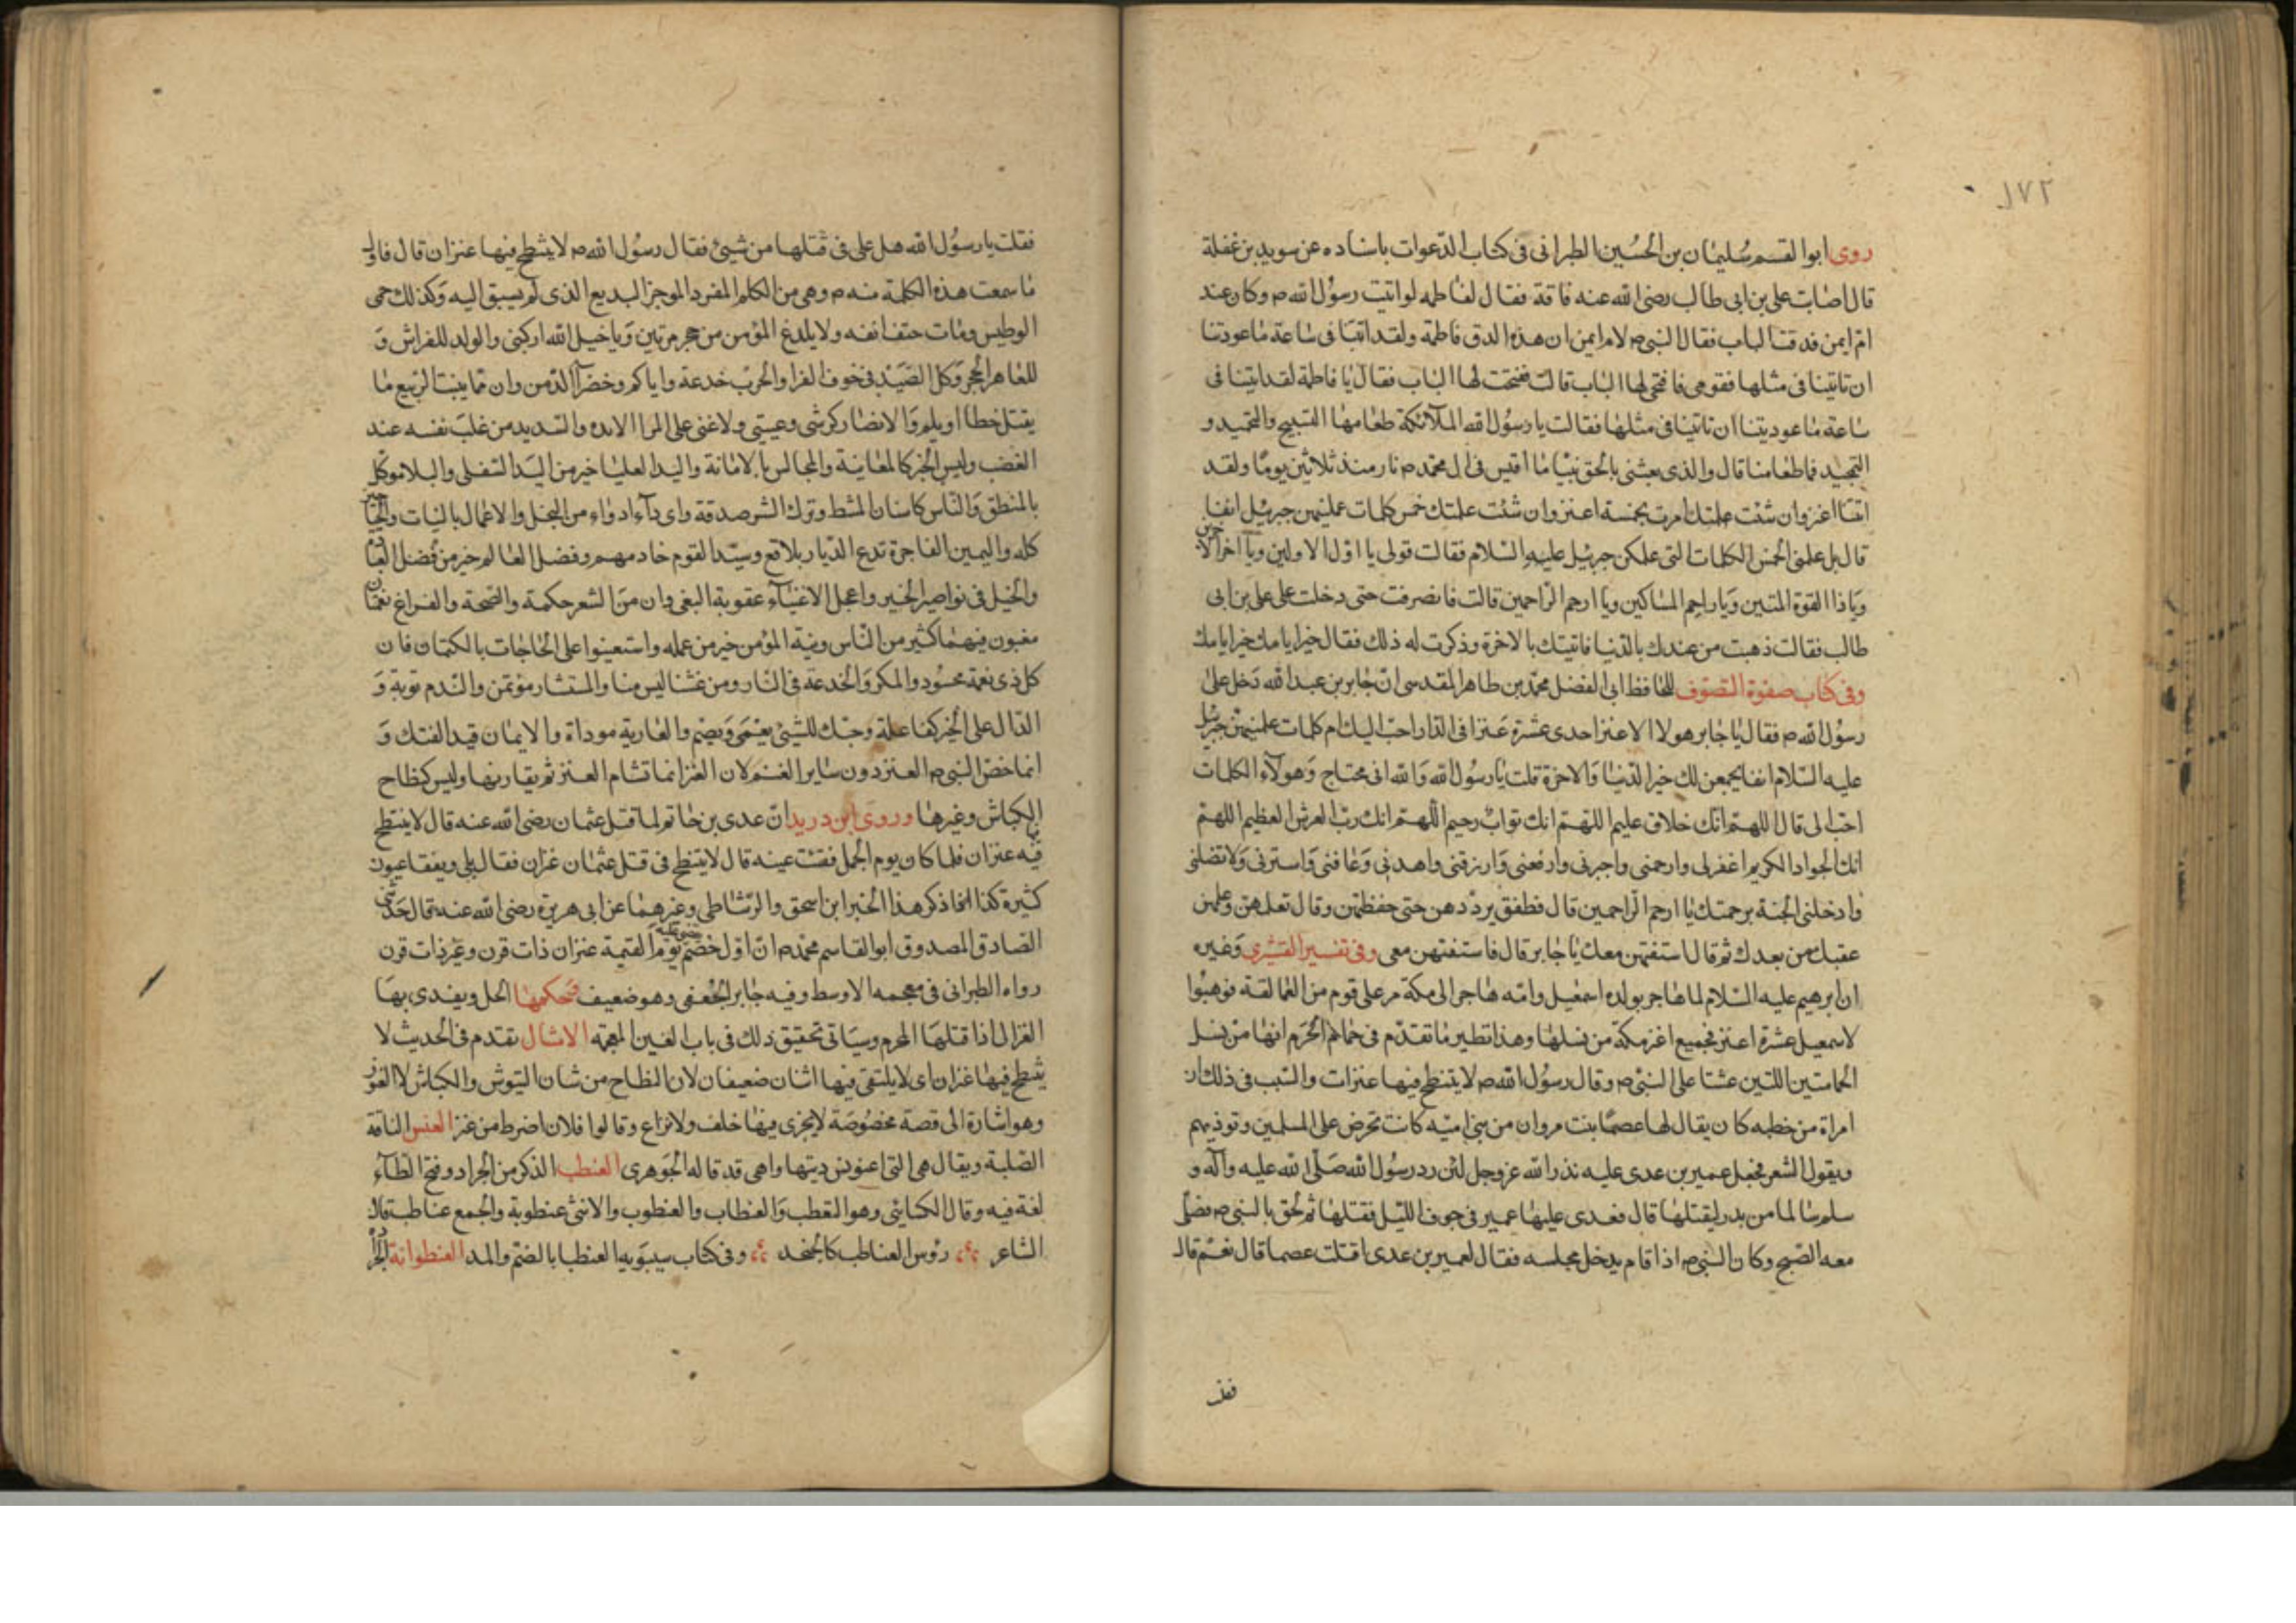 ١٧٢
روى ابوا القسم سُليمان بن الحُسين الطبرانى فى كتاب الدعوات باسناده عن سويد بن غفلة
قال اصابت على بن ابى طالب رضى الله عنه فاقة فقال لفاطمه لو اتيت رسول الله ص وكان عند
ام ايمن فدقت الباب فقال النبى ص لام ايمن ان هذه الدق فاطمة ولقد اتتنا فى ساعة ما عودتنا
ان تاتينا فى مثلها فقومى فافتحى لها الباب قالت ففتحت لها الباب فقال يا فاطمة لقد اتيتنا فى
ساعة ما عوديتنا ان تاتينا فى مثلها فقالت يا رسول الله الملآئكة طعامها التسبيح والتحميد و
التمجيد فما طعامنا قال والذى بعثنى بالحق نبيا ما اقتبس فى ال محمد ص نار منذ ثلاثين يومًا ولقد
اتتنا اعنز وان شئت امرت بخمسة اعنز وان شئت علمتك خمس كلمات علمنيهن جبريل انفا
قال بل علمنى الخمس الكلمات التى علمكن جبرئيل عليه السلام فقالت قولى يا اول الاولين ويا اخر الاخرين
ويا ذا القوة المتين ويا راحم المساكين ويا ارحم الراحمين قالت فانصرفت حتى دخلت على على بن ابى
طالب فقالت ذهبت من عندك بالدنيا فاتيتك بالاخرة وذكرت له ذلك فقال خيرا يامك خيرا يامك
وفى كتاب صفوة التصوف للحافظ ابى الفضل محمد بن طاهر المقدسى ان جابر بن عبد الله دخل على
رسول الله ص فقال يا جابر هولا الاعنز احدى عشرة عنزا فى الدار احب اليك ام كلمات علمنيهن جبرئيل
عليه السلام انفا يجمعن لك خير الدنيا والاخرة قلت يا رسول الله والله انى محتاج وهولآء الكلمات
احب الى قال اللهم انك خلاق عليم اللهم انك تواب رحيم اللهم انك رب العرش العظيم اللهم
انك الجواد الكريم اغفر لى وارحمنى واجبرنى وارفعنى وارزقنى واهدنى وعافنى واسترنى ولا تضلنى
وادخلنى الجنة برحمتك يا ارحم الراحمين قال فطفق يرددهن حتى حفظتهن وقال تعلمهن وعلمهن
عقبك من بعدك ثم قال استفتهن معك يا جابر قال فاستفتهن معى وفى تفسير القشيرى وغيره
ان ابرهيم عليه السلام لما هاجر بولده اسمعيل وامه هاجر الى مكة مر على قوم من العمالقة فوهبوا
لاسمعيل عشرة اعنز فجميع اعنز مكة من نسلها وهذا نظير ما تقدم فى حمام الحرم انها من نسل
الحمامتين اللتين عششتا على النبى ص وقال رسول الله ص لا ينتطح فيها عنزات والسبب فى ذلك ان
امراة من خطمه كان يقال لها عصما بنت مروان من بنى اميه كانت تحرض على المسلمين وتوذيهم
ويقول الشعر فجعل عمير بن عدى عليه نذرا لله عز وجل لئن رد رسول الله صلى الله عليه واله و
سلم سالما من بدر ليقتلها قال فعدى عليها عمير فى جوف الليل فقتلها ثم لحق بالنبى ص فصلى
معه الصبح وكان النبى ص اذا قام يدخل مجلسه فقال لعمير بن عدى اقتلت عصما قال نعم قال
فقلت
فقلت يا رسول الله هل على فى قتلها من شيئ فقال رسول الله ص لا ينتطح فيها عنزان قال فاول
ما سمعت هذه الكلمة منه ص وهى من الكلام المفرد الموجز البديع الذى لم يسبق اليه وكذلك حمى
الوطيس ومات حتف انفه ولا يلدغ المؤمن من جحر مرتين ويا خيل الله اركبى والولد للفراش و
للعاهر الحجر وكل الصيد فى جوف الفرا والحرب خدعة واياكم وخضرآ الدمن وان مما ينبت الربيع ما
يقتل خطا او يلم والانصار كرشى وعيبتى ولا غنى على المرا والشديد من غلب نفسه عند
الغضب وليس الخبر كالمعاينة والمجالس بالامانة واليد العليا خير من اليد السفلى والبلا موكل
بالمنطق والناس كاسنان المشط وترك الشر صدقة واى دآء ادواء من البخل والاعمال بالنيات والحيا خير
كله واليمين الفاجرة تدع الديار بلاقع وسيد القوم خادمهم وفضل العالم خير من فضل العباده
والخيل فى نواصيها الخير واعجل الاشياء عقوبة البغى وان من الشعر حكمة والصحة والفراغ نعمتان
مغبون فيهما كثير من الناس ونية المؤمن خير من عمله واستعينوا على الحاجات بالكتمان فان
كل ذى نعمة محسود والمكر والخدعة فى النار ومن غشنا ليس منا والمستشار مؤتمن والندم توبة و
الدال على الخير كفاعله وحبك للشيئ يعمى ويصم والعارية موداة والايمان قيد الفتك و
انما خص النبى ص العنز دون ساير الغنم لان العنز انما تشام العنز ثم يقاربها وليس كنطاح
الكباش وغيرها وروى ابن دريد ان عدى بن حاتم لما قتل عثمان رضى الله عنه قال لا ينتطح
فيه عنزان فلما كان يوم الجمل فقئت عينه قال لا ينتطح فى قتل عثمان عنزان فقال بلى ويفقا عيون
كثيرة ذكر هذا الخبر ابن اسحق والرشاطى وغيرهما عن ابى هريرة رضى الله عنه قال حدثنى
الصادق المصدوق ابو القاسم محمد ص ان اول خصم يوم القيمة عنزان ذات قرن وغير ذات قرن
رواه الطبرانى فى معجمه الاوسط وفيه جابر الجعفى وهو ضعيف فحكمها الحل ويفدى بها
الغزال اذا قتلها المحرم وسياتى تحقيق ذلك فى باب الغين المعجمه الامثال تقدم فى الحديث لا
ينتطح فيها عنزان اى لا يلتقى فيها اثنان ضعيفان لان النطاح من شان التيوش والكباش لا العنوز
وهو اشارة الى قصة مخصوصة لا يجرى فيها خلف ولا نزاع وقالوا فلان اضرط من عنز العنس الناقة
الصلبة ويقال هى التى اعنونس ذنبها واهى قد قاله الجوهرى العنطب الذكر من الجراد وفتح الطآء
لغة فيه وقال الكسائى وهو العنطب والعنطاب والعنطوب والانثى عنطوبة والجمع عناطب قال
الشاعر رؤس العناطب كالعنجد وفى كتاب سيبويه العنطبا بالضم والمد العنطوانة